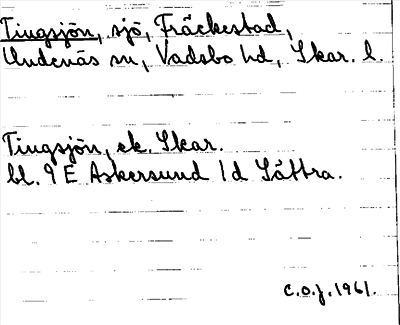 Tingsjön, sjö, Fräckestad,
Undenäs sn, Vadsbo hd, Skar. l.
Tingsjön, ek. Skar.
bl. 9 E Askersund 1d Sättra.
C.O.J. 1961.